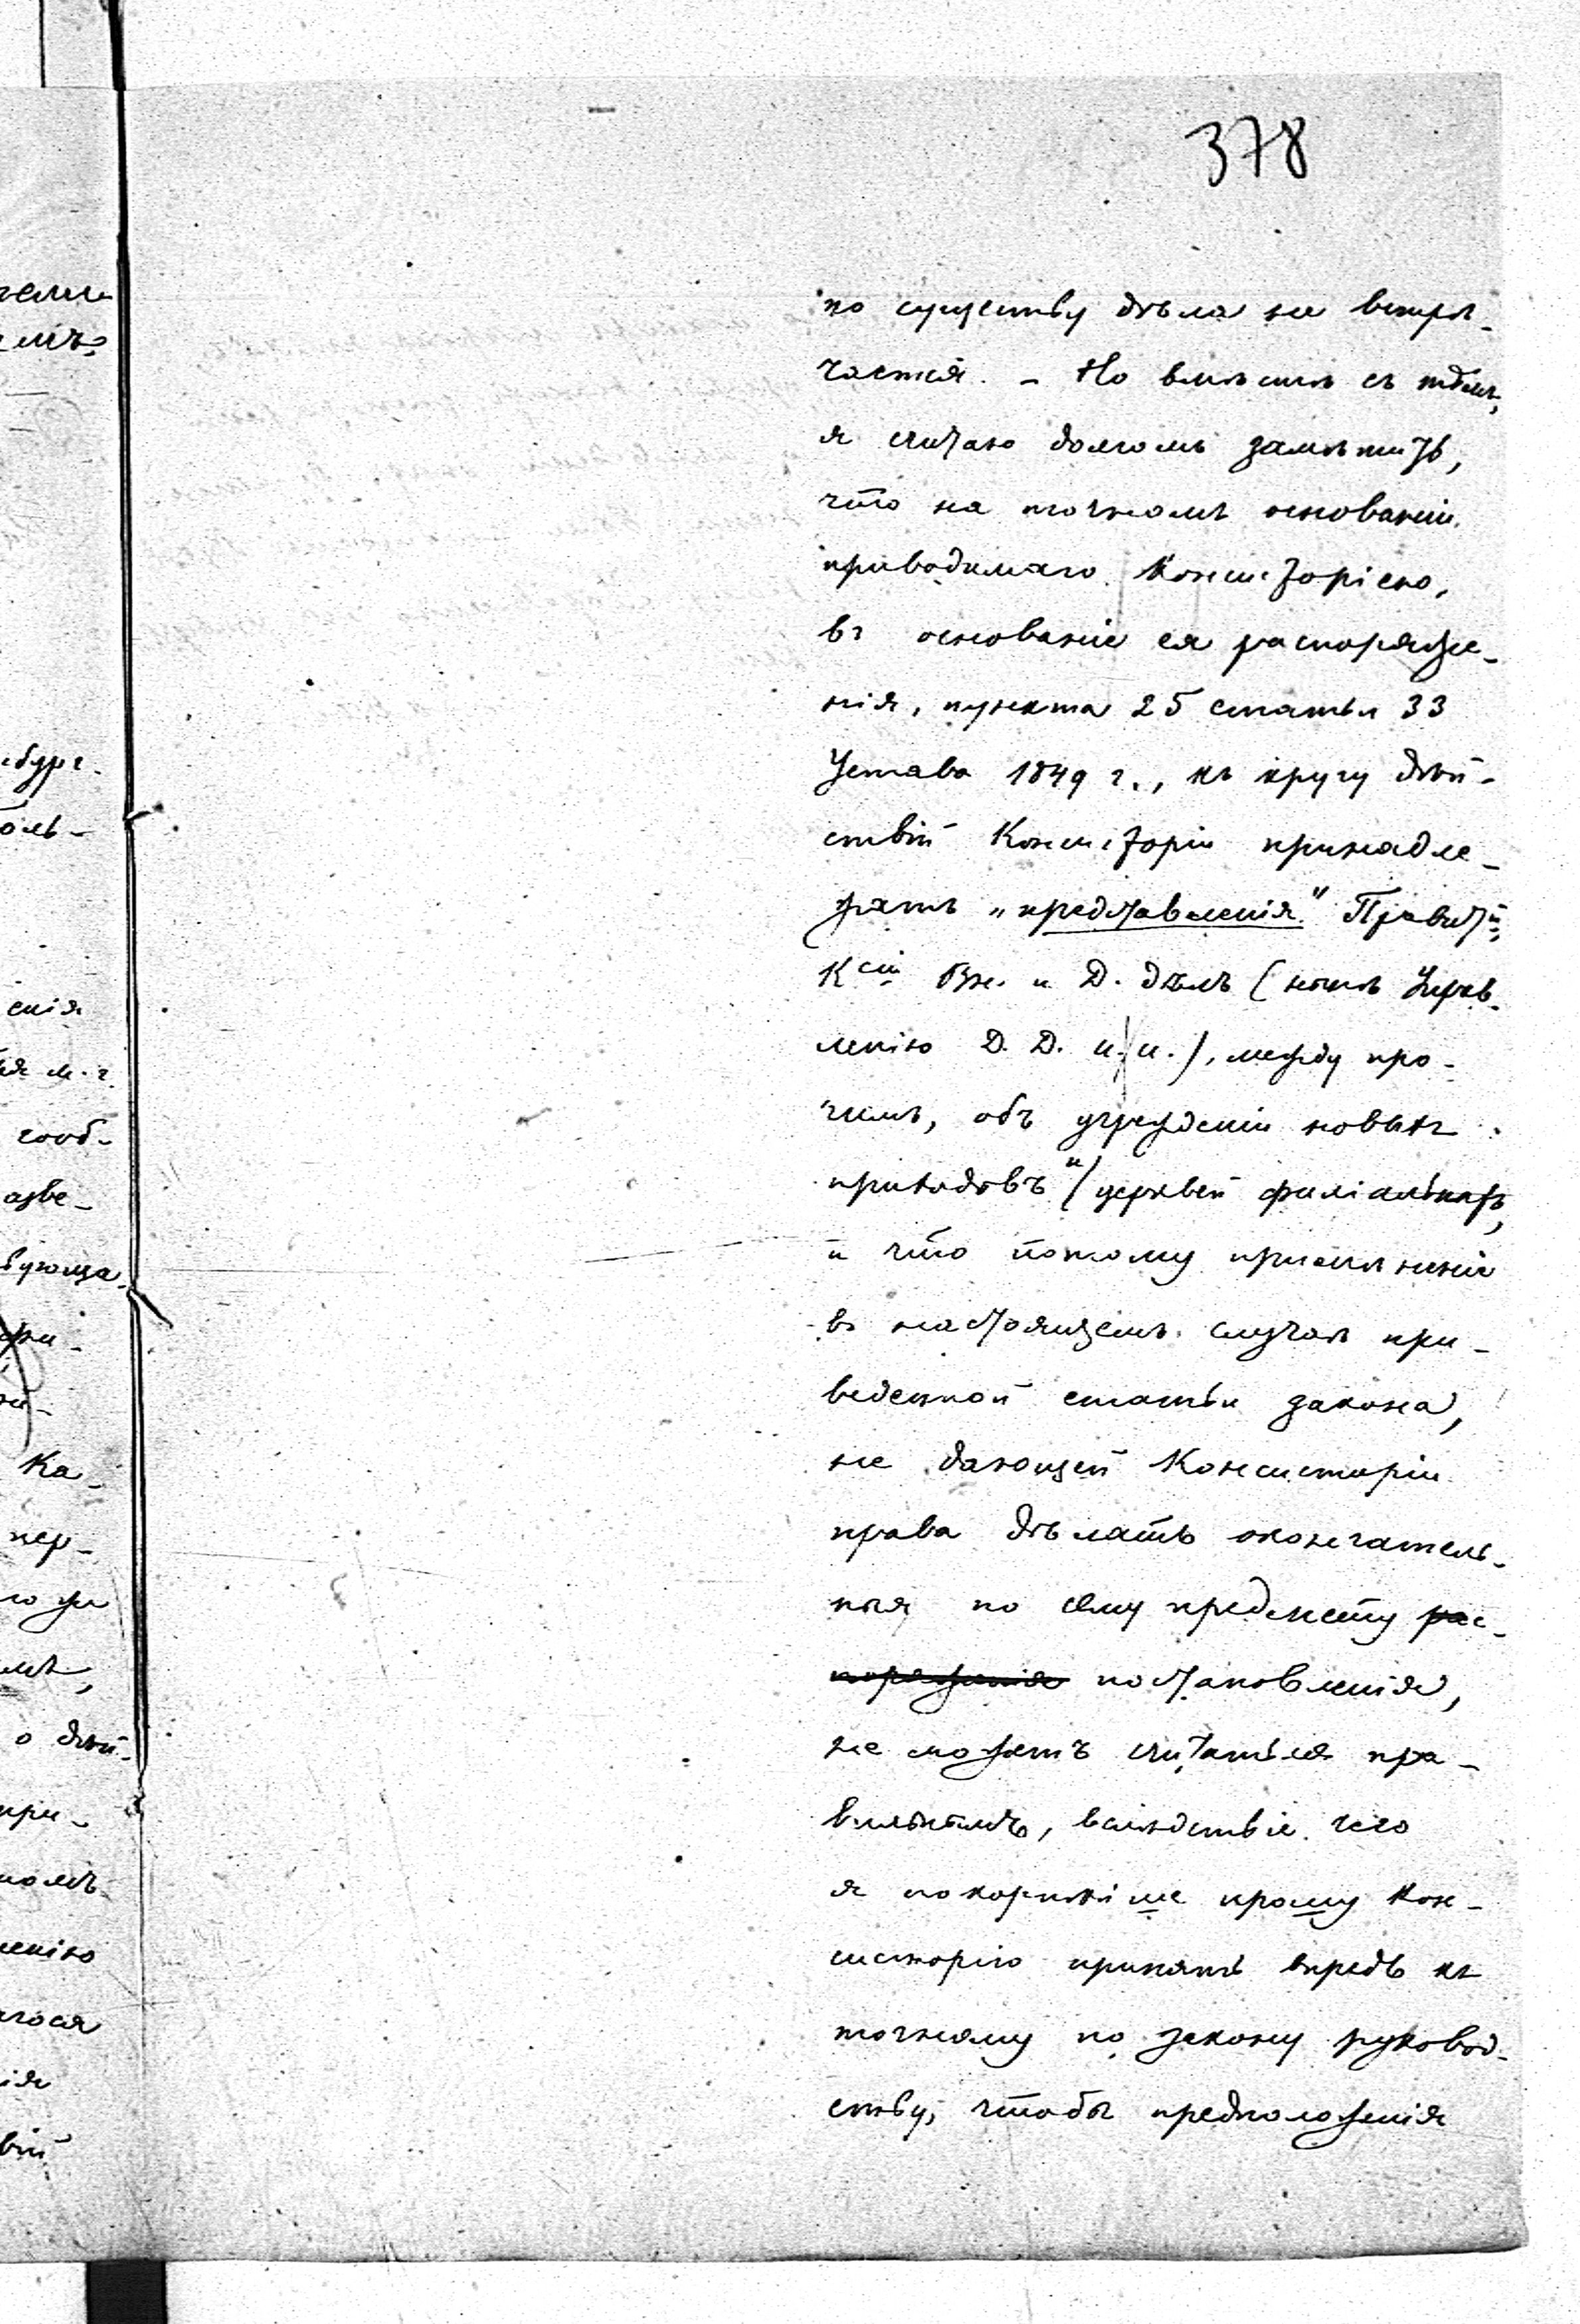 378
по существу дѣла не встрѣ-
чается. – Но вмѣстѣ съ тѣмъ,
я считаю долгомъ замѣтить,
что на точномъ основаніи
приводимаго Консисторіею,
въ основаніе ея распоряже-
нія, пункта 25 статьи 33
Устава 1849 г., къ кругу дѣй-
ствій Консисторіи принадле-
жатъ „представленія"
К Вн. и Д. дѣлъ (нынѣ Управ-
ленію Д. Д. и. и.), между про-
чимъ, объ учрежденіи новыхъ
приходовъ и церквей филіальныхъ,
и что потому примѣненіе
въ настоящемъ случаѣ при-
веденной статьи закона,
не дающей Консисторіи
права дѣлать окончатель-
ныя по сему предмету рас-
поряженія постановленія,
не можетъ считаться пра-
вильнымъ, вслѣдствіе чего
я покорнѣйше прошу Кон-
систорію принять впредь къ
точному по закону руковод-
ству, чтобы предположенія
ебург-
оль-
енія
ія м. г.
сооб-
азве-
вующа-
Ка-
пер-
го же
о дѣй-
при-
ленію
гося
ія
вій